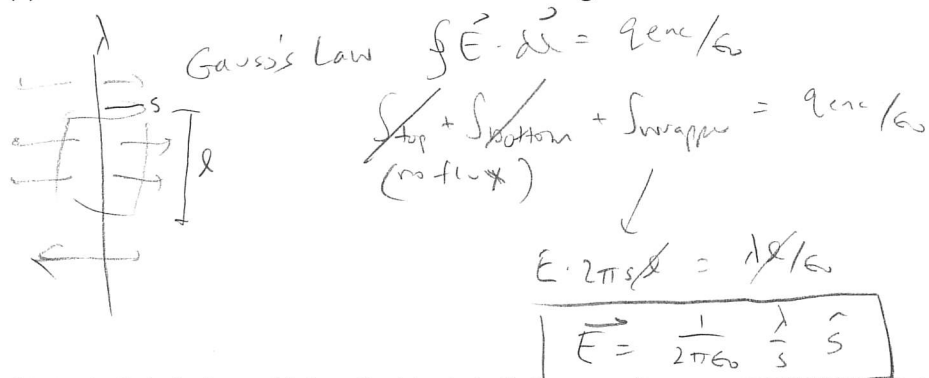 λ
Gauss's Law ∮E⃗·da⃗ = qenc/ε₀
s
∫top + ∫bottom + ∫wrapper = qenc/ε₀
(no flux)
l
E·2πsl = λl/ε₀
E⃗ = 1/2πε₀ λ/s ŝ